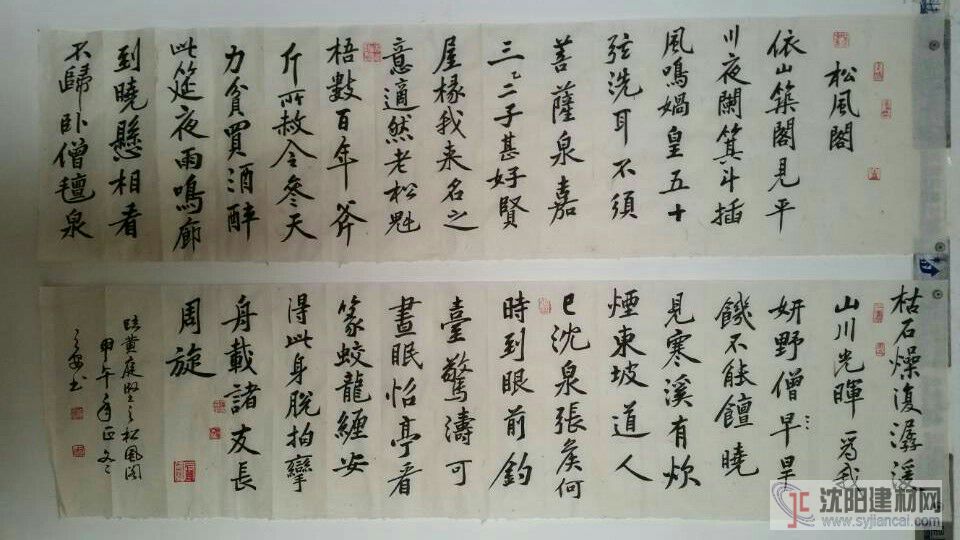 松風閣
依山築閣見平
川夜闌箕斗插
風鳴媧皇五十
弦洗耳不須
菩薩泉嘉
三二三子甚好賢
屋椽我来名之
意適然老松魁
梧數百年斧
斤所赦令參天
力貧買酒醉
此筵夜雨鳴廊
到曉懸相看
不歸卧僧氊泉
枯石燥復潺湲
山川光暉爲我
妍野僧早旱
饑不能饘曉
見寒溪有炊
煙東坡道人
已沈泉張矦何
時到眼前釣
臺驚濤可
晝眠怡亭看
篆蛟龍纏安
得此身脫拘攣
舟載諸友長
周旋
臨黄庭堅之松風閣
甲午年
沈阳建材网
www.syjiancai.com